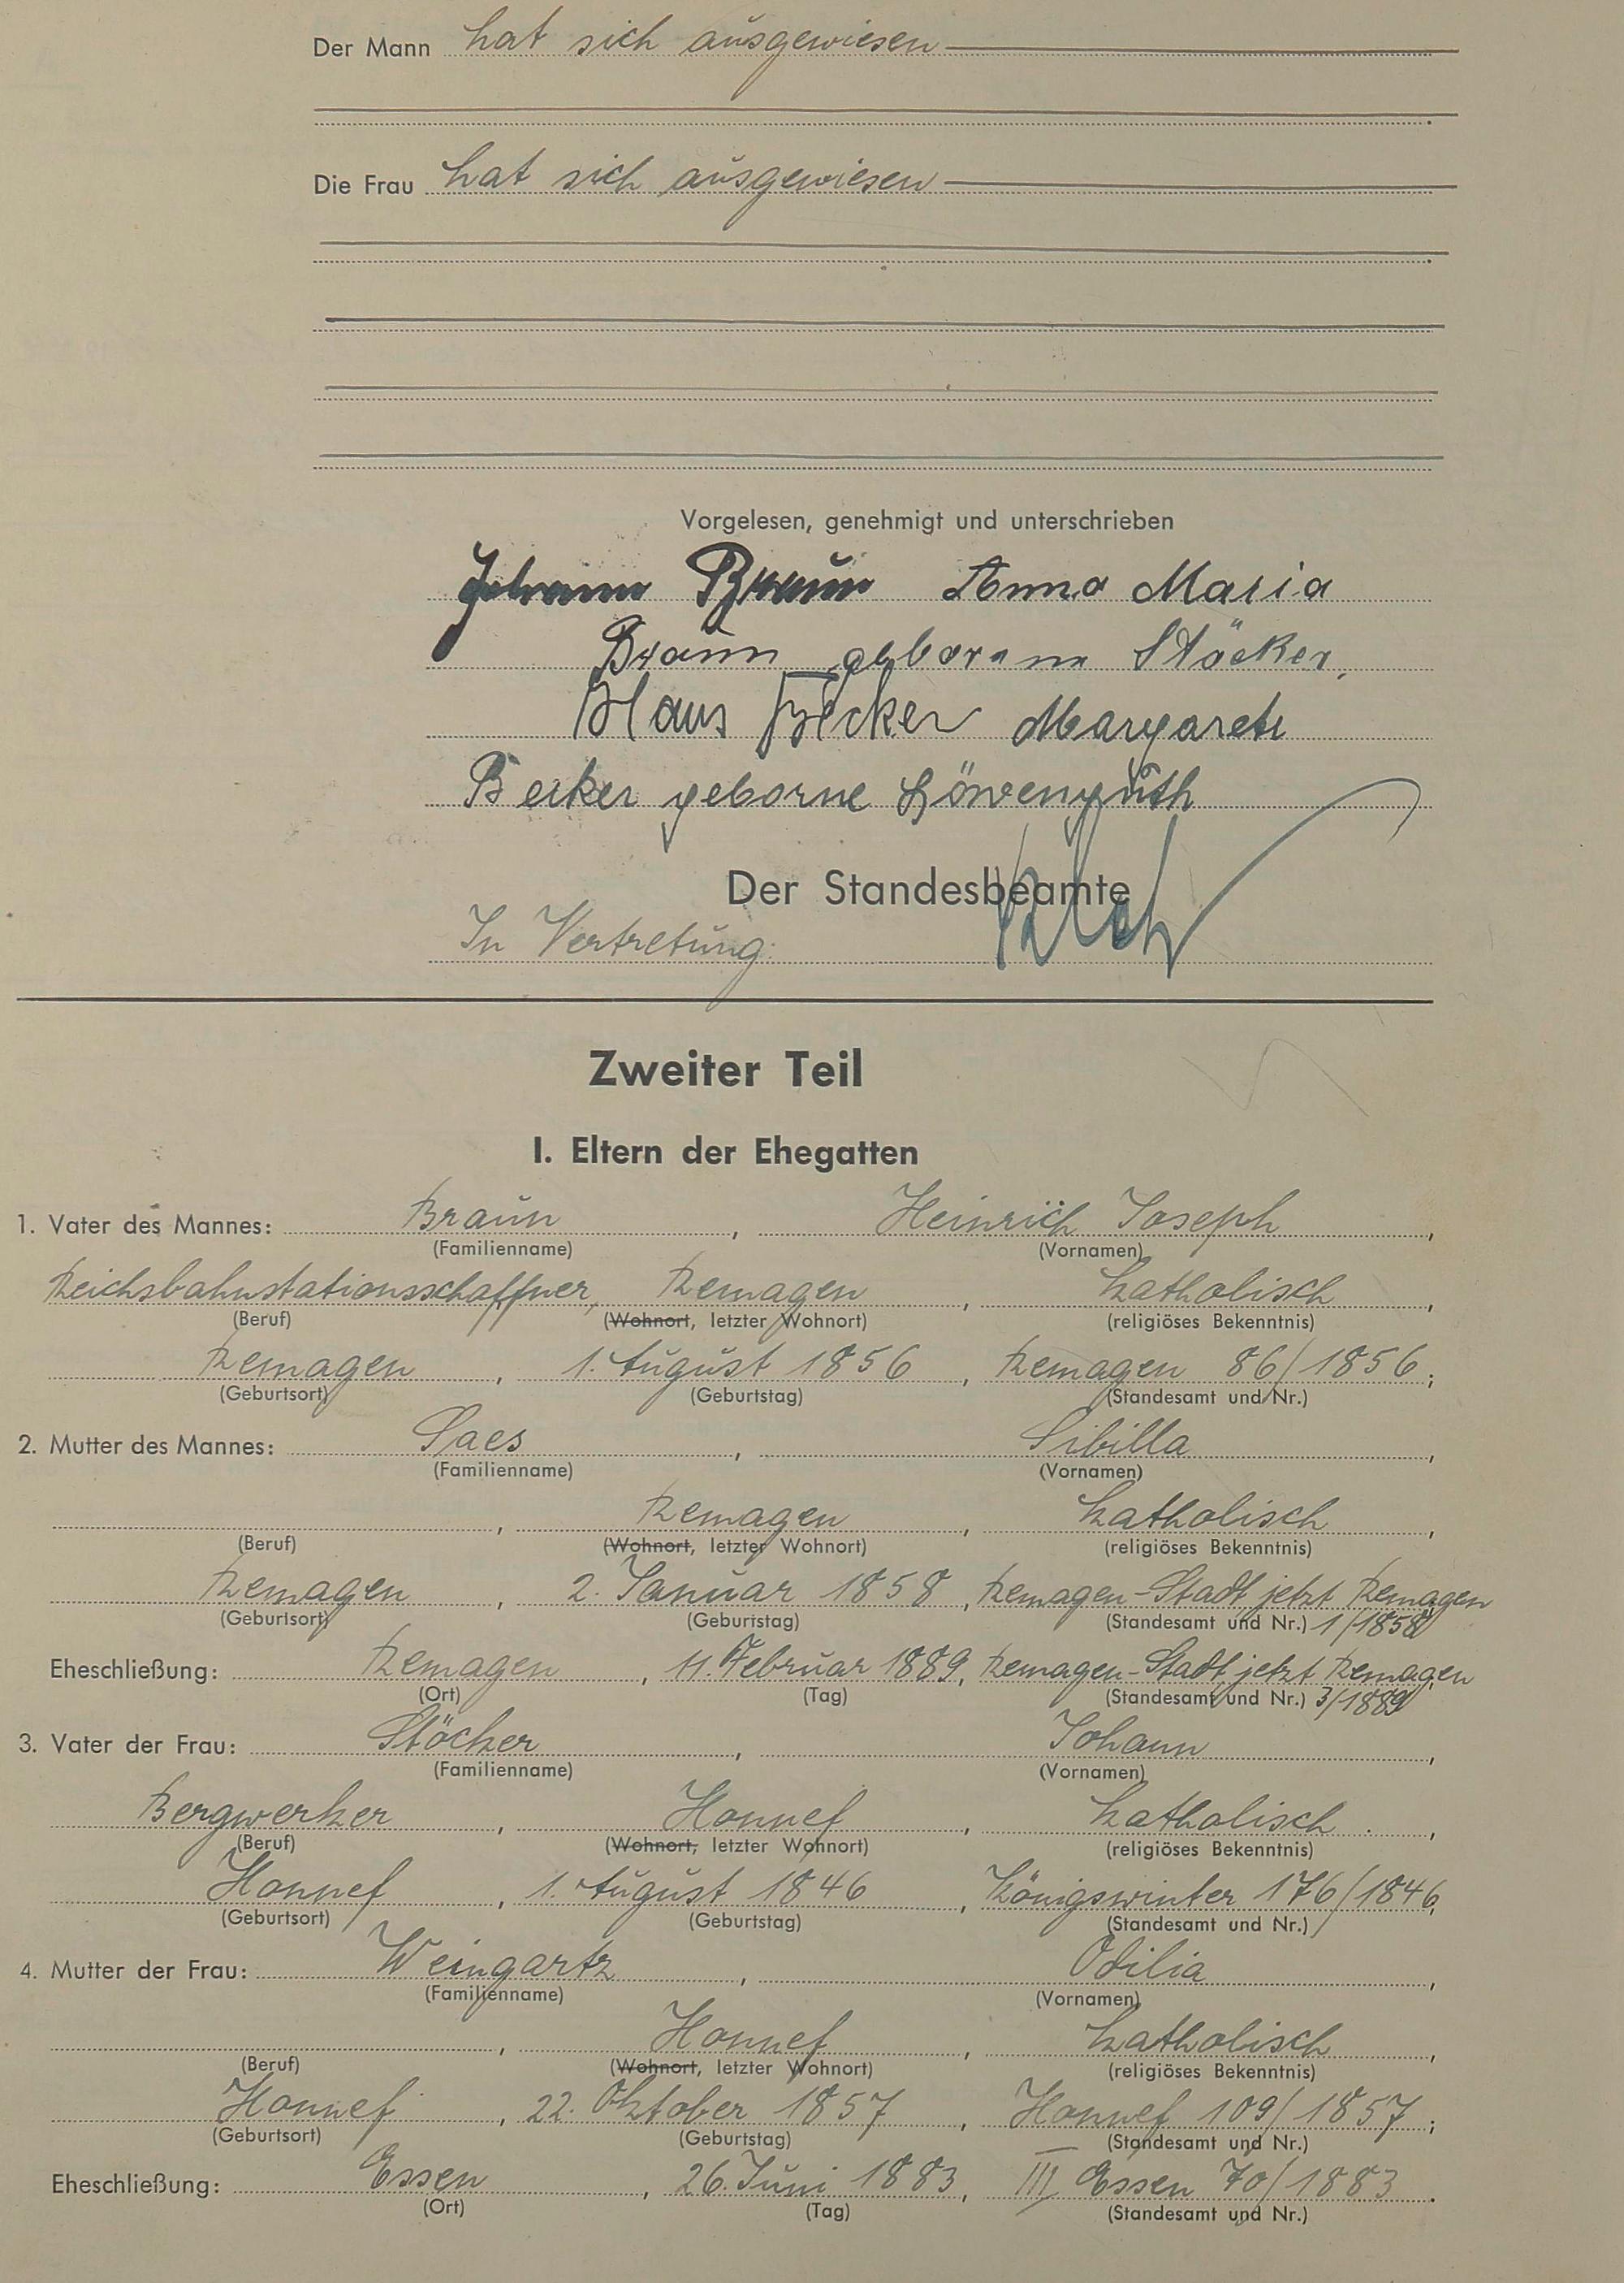 Der Mann hat sich ausgewiesen
Die Frau hat sich ausgewiesen
Vorgelesen, genehmigt und unterschrieben
Johann Braun Anna Maria
Braun geborene Stöcker.
Hans Becker Margarete
Becker geborne Löwenguth
Der Standesbeamte
In Vertretung:
Zweiter Teil
I. Eltern der Ehegatten
1. Vater des Mannes: Braun, Heinrich Joseph,
(Familienname) (Vornamen)
Reichsbahnstationsschaffner, Remagen, katholisch,
(Beruf) (Wohnort, letzter Wohnort) (religiöses Bekenntnis)
Remagen, 1. August 1856, Remagen 86/1856;
(Geburtsort) (Geburtstag) (Standesamt und Nr.)
2. Mutter des Mannes: Saes, Sibilla,
(Familienname) (Vornamen)
, Remagen, katholisch,
(Beruf) (Wohnort, letzter Wohnort) (religiöses Bekenntnis)
Remagen, 2. Januar 1858, Remagen-Stadt jetzt Remagen
(Geburtsort) (Geburtstag) (Standesamt und Nr.) 1/1858
Eheschließung: Remagen, 11. Februar 1889, Remagen-Stadt, jetzt Remagen
(Ort) (Tag) (Standesamt und Nr.) 3/1889
3. Vater der Frau: Stöcker, Johann,
(Familienname) (Vornamen)
Bergwerker, Honnef, katholisch,
(Beruf) (Wohnort, letzter Wohnort) (religiöses Bekenntnis)
Honnef, 1. August 1846, Königswinter 176/1846,
(Geburtsort) (Geburtstag) (Standesamt und Nr.)
4. Mutter der Frau: Weingartz, Odilia,
(Familienname) (Vornamen)
, Honnef, katholisch,
(Beruf) (Wohnort, letzter Wohnort) (religiöses Bekenntnis)
Honnef, 22. Oktober 1857, Honnef 109/1857;
(Geburtsort) (Geburtstag) (Standesamt und Nr.)
Eheschließung: Essen, 26. Juni 1883, III Essen 70/1883.
(Ort) (Tag) (Standesamt und Nr.)